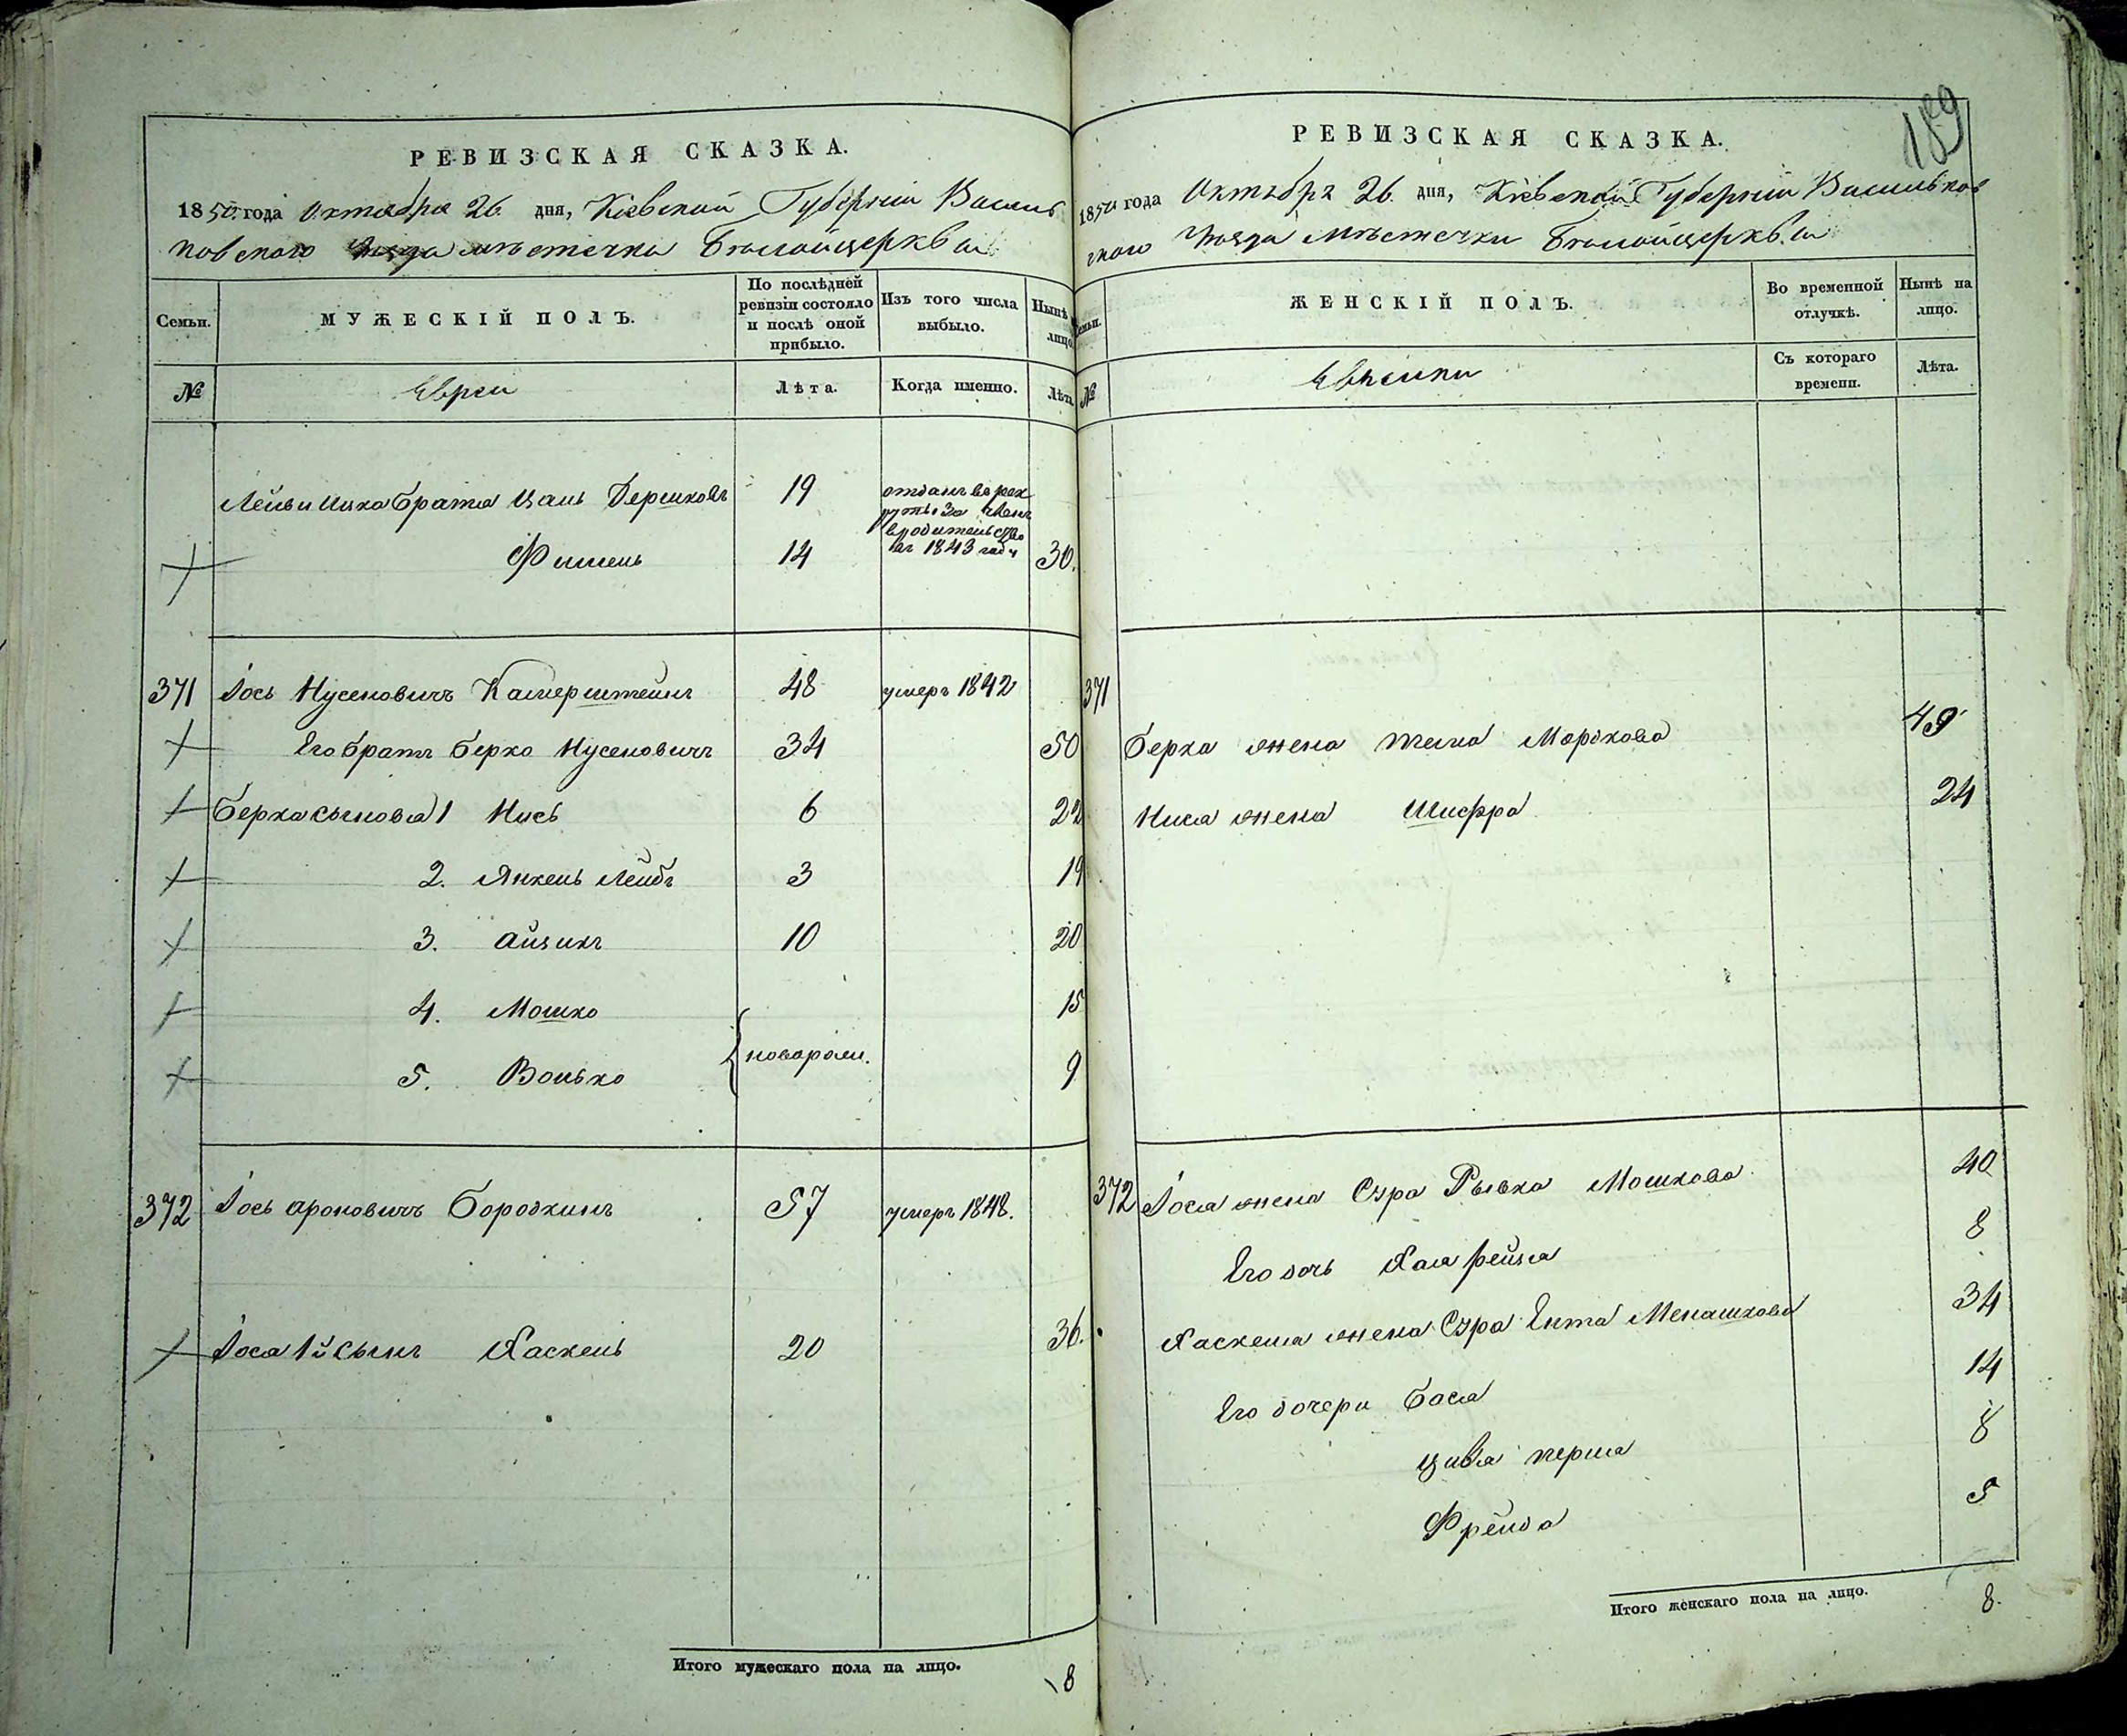 189
РЕВИЗСКАЯ СКАЗКА.
1850 года Октября 26 дня, Кіевской Губерніи Василь
ковскаго уезда мѣстечка Бѣлойцеркви
Семьи.
МУЖЕСКІЙ ПОЛЪ.
По послѣдней ревизіи состояло и послѣ оной прибыло.
Изъ того числа выбыло.
Нынѣ лицо
№
Евреи
Лѣта.
Когда именно.
Лѣта
Брата Цаль Гершковъ 19 отданъ въ рек
руты за член
вредительство
въ 1843 году
Фишель 14 30.
371 Іось Нусеновичъ Камерштейнъ 48 умеръ 1842
Его братъ Берко Нусеновичъ 34 50
Берка сыновья 1 Нись 6 22
2. Янкель Лейбъ 3 19
3. Айзикъ 10 20
4. Мошко 15
новорож.
5. Волько 9
372 Іось Ароновичъ Бородкинъ 57 умеръ 1848.
Іося 1й сынъ Хаскель 20 36.
Итого мужескаго пола на лицо. 8
РЕВИЗСКАЯ СКАЗКА.
1850 года Октября 26 дня, Кіевской Губерніи Васильков
скаго уезда мѣстечка Бѣлойцеркви
Семьи.
ЖЕНСКІЙ ПОЛЪ.
Во временной отлучкѣ.
Нынѣ на лицо.
№
Еврейки
Съ котораго времени.
Лѣта.
371
Берка жена Мордкова 49
Нися жена Шифра 24
372 Іося жена Сура Рывка Мошкова 40
Его дочь Хая Рейзя 8
Хаскеля жена Сура Ента Менашкова 34
Его дочери Бася 14
Цивья Перля 8
Фрейда 5
Итого женскаго пола на лицо. 8.